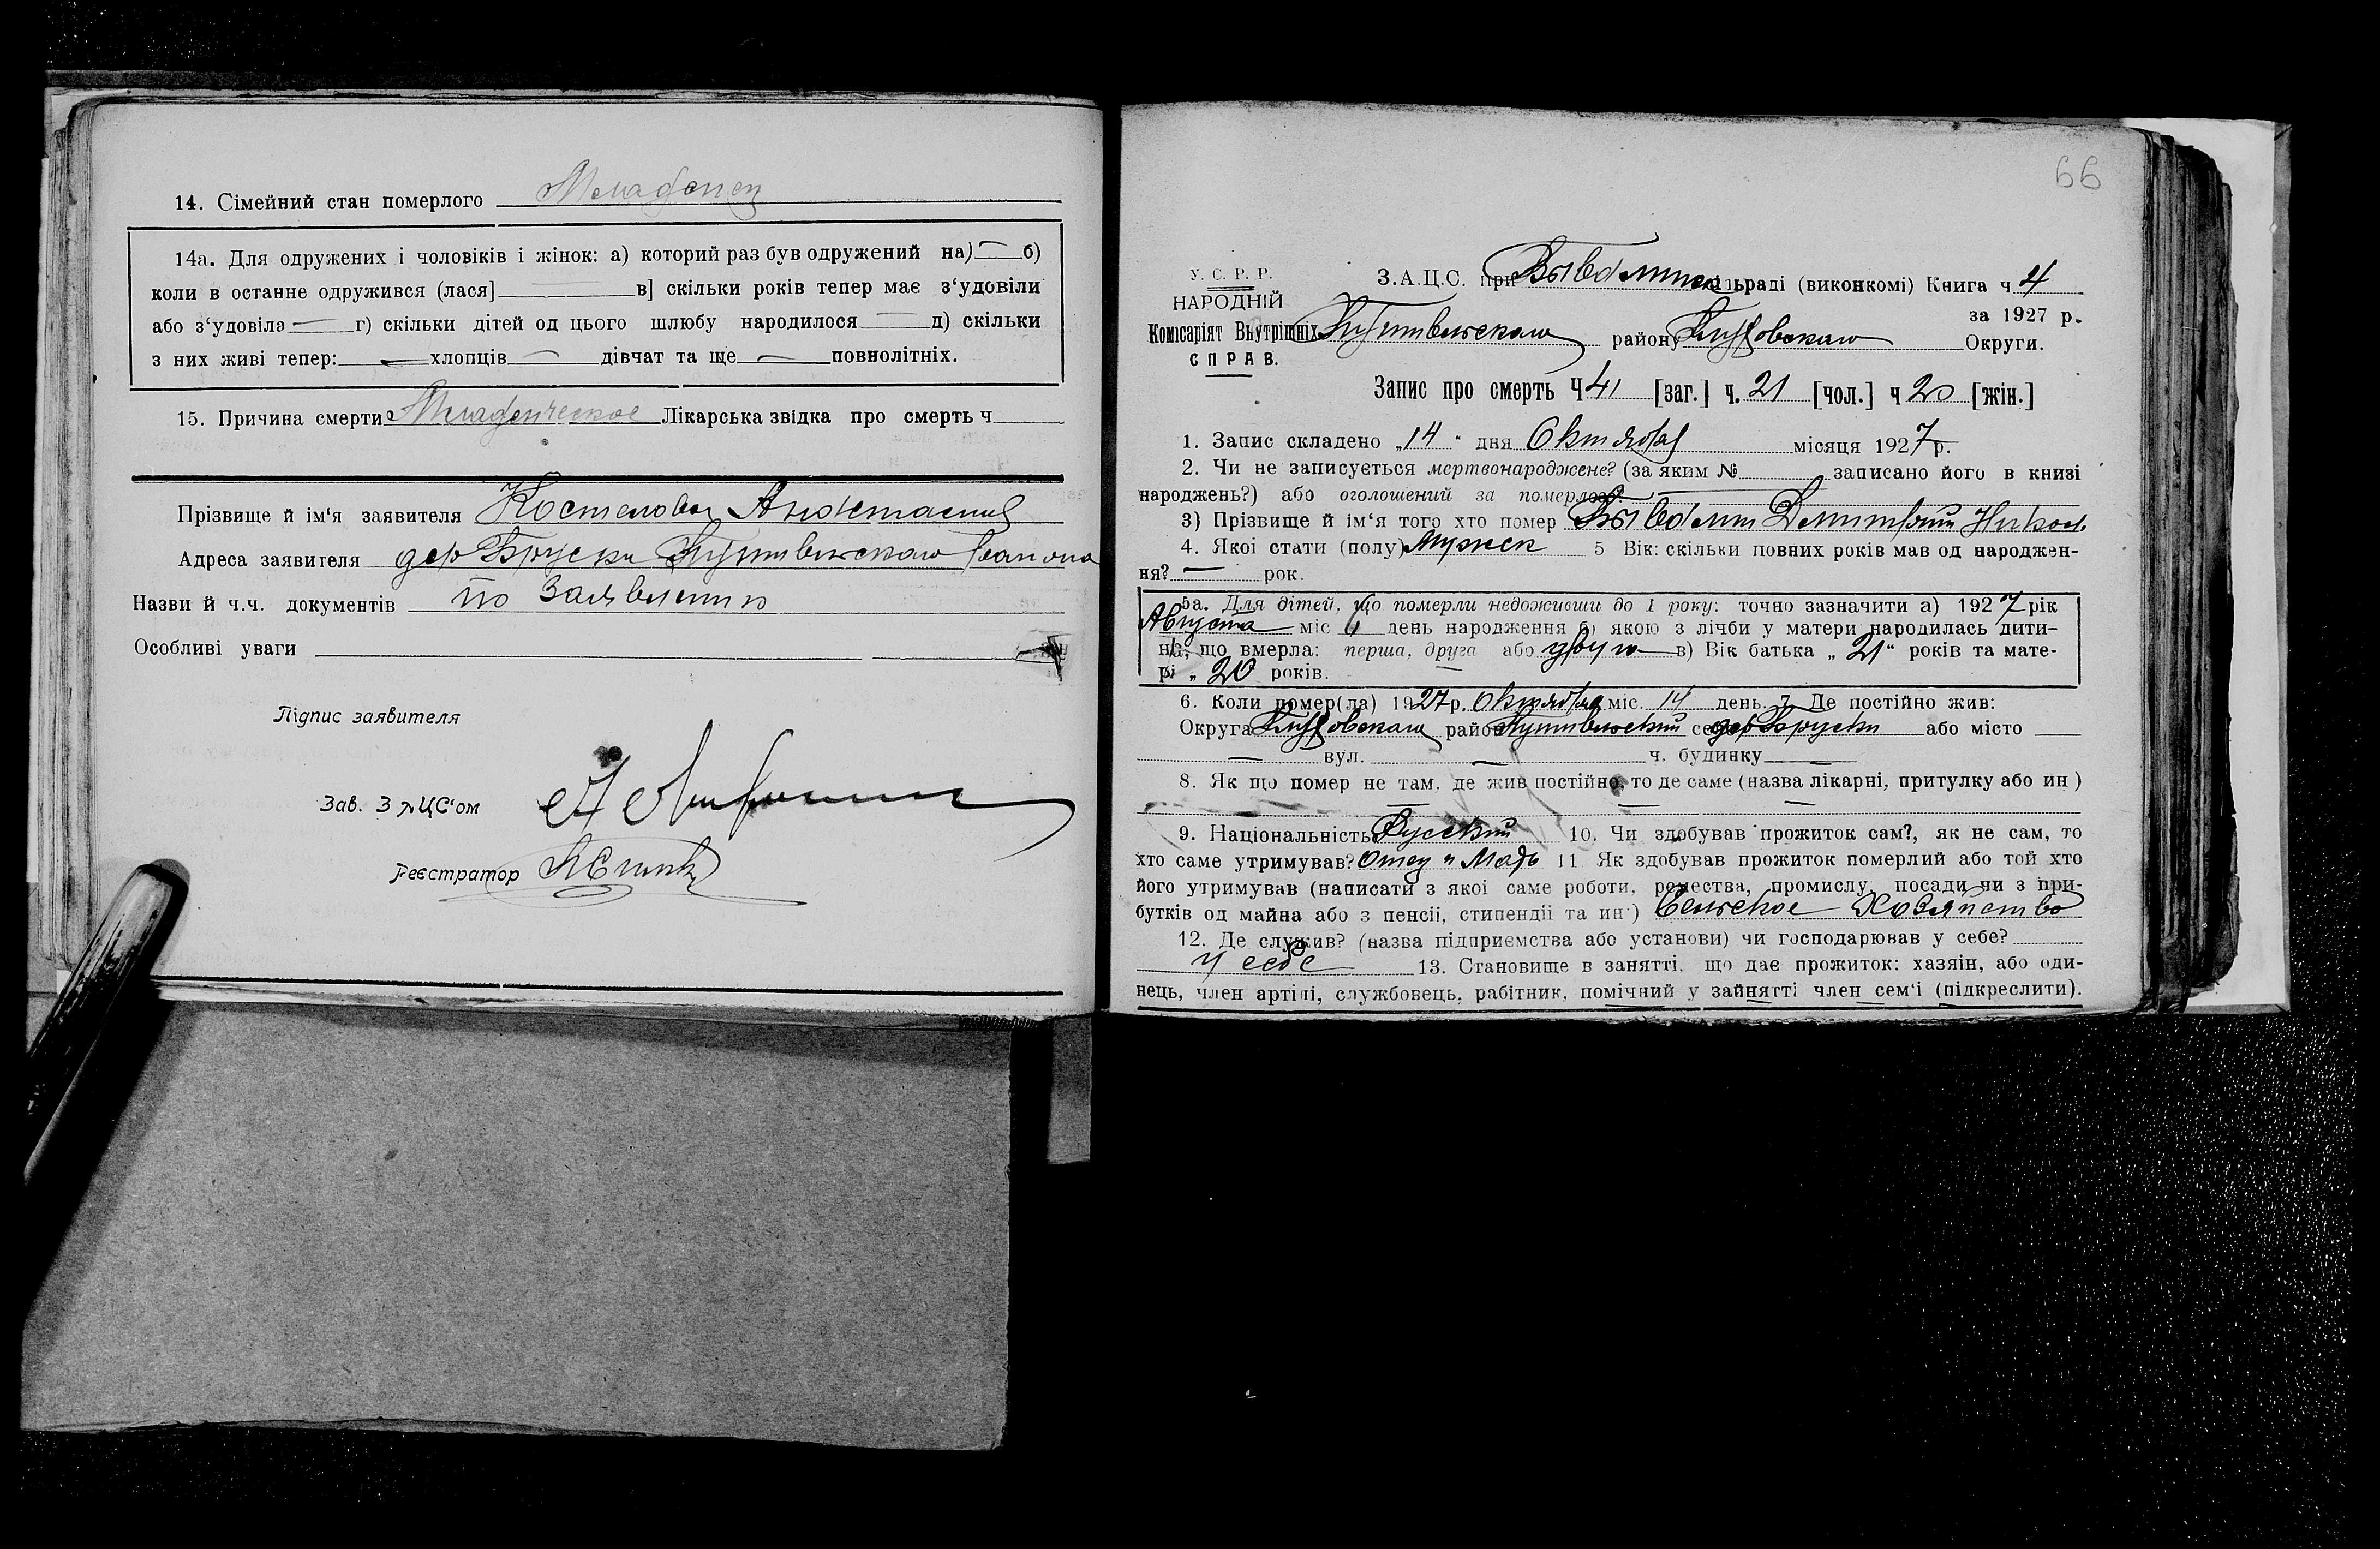 14. Сімейний стан померлого Младенец
14а. Для одружених і чоловіків і жінок: а) которий раз був одружений на) — б)
коли в останне одружився (лася] в] скільки років тепер має з‘удовіли
або з‘удовіла — г) скільки дітей од цього шлюбу народилося — д) скільки
з них живі тепер: — хлопців — дівчат та ще — повнолітніх.
15. Причина смерти Младенческое Лікарська звідка про смерть ч
Прізвище й ім‘я заявителя Анастасия
Адреса заявителя дер Бруски Путивльского района
Назви й ч.ч. документів по заявлению
Особливі уваги
Підпис заявителя
Зав. ЗАЦС‘ом
Реєстратор
66
У. С. Р. Р.
НАРОДНІЙ
Комісаріят Внутрішніх
СПРАВ.
З.А.Ц.С. при сільраді (виконкомі) Книга ч. 4
за 1927 р.
Путивльского району Глуховского Округи.
Запис про смерть Ч 41 [заг.] ч. 21 [чол.] ч 20 [жін.]
1. Запис складено „14“ дня Октября місяця 1927 р.
2. Чи не записується мертвонароджене? (за яким № записано його в книзі
народжень?) або оголошений за померлого? —
3) Прізвище й ім‘я того хто помер Дмитрий Никол
4. Якої стати (полу) Мужск 5 Вік: скільки повних років мав од народжен-
ня? — рок.
5а. Для дітей, що померли недоживши до 1 року: точно зазначити а) 1927 рік
Августа міс 6 день народження б) якою з лічби у матери народилась дити-
на, що вмерла: перша, друга або другою в) Вік батька „21“ років та мате-
рі „20 років.
6. Коли помер(ла) 1927 р. Октября міс. 14 день. 7. Де постійно жив:
Округа Глуховского район Путивльский село дер Бруски або місто —
— вул. — ч. будинку —
8. Як що помер не там, де жив постійно, то де саме (назва лікарні, притулку або ин )
9. Національність Русский 10. Чи здобував прожиток сам?, як не сам, то
хто саме утримував? Отец и Мать 11 Як здобував прожиток померлий або той хто
його утримував (написати з якої саме роботи, ремества, промислу, посади чи з при-
бутків од майна або з пенсії, стипендії та ин ) Сельское Хозяйство
12. Де служив? (назва підприємства або установи) чи господарював у себе?
у себе 13. Становище в занятті, що дає прожиток: хазяїн, або оди-
нець, член артілі, службовець, рабітник, помічний у зайнятті член сем‘ї (підкреслити).